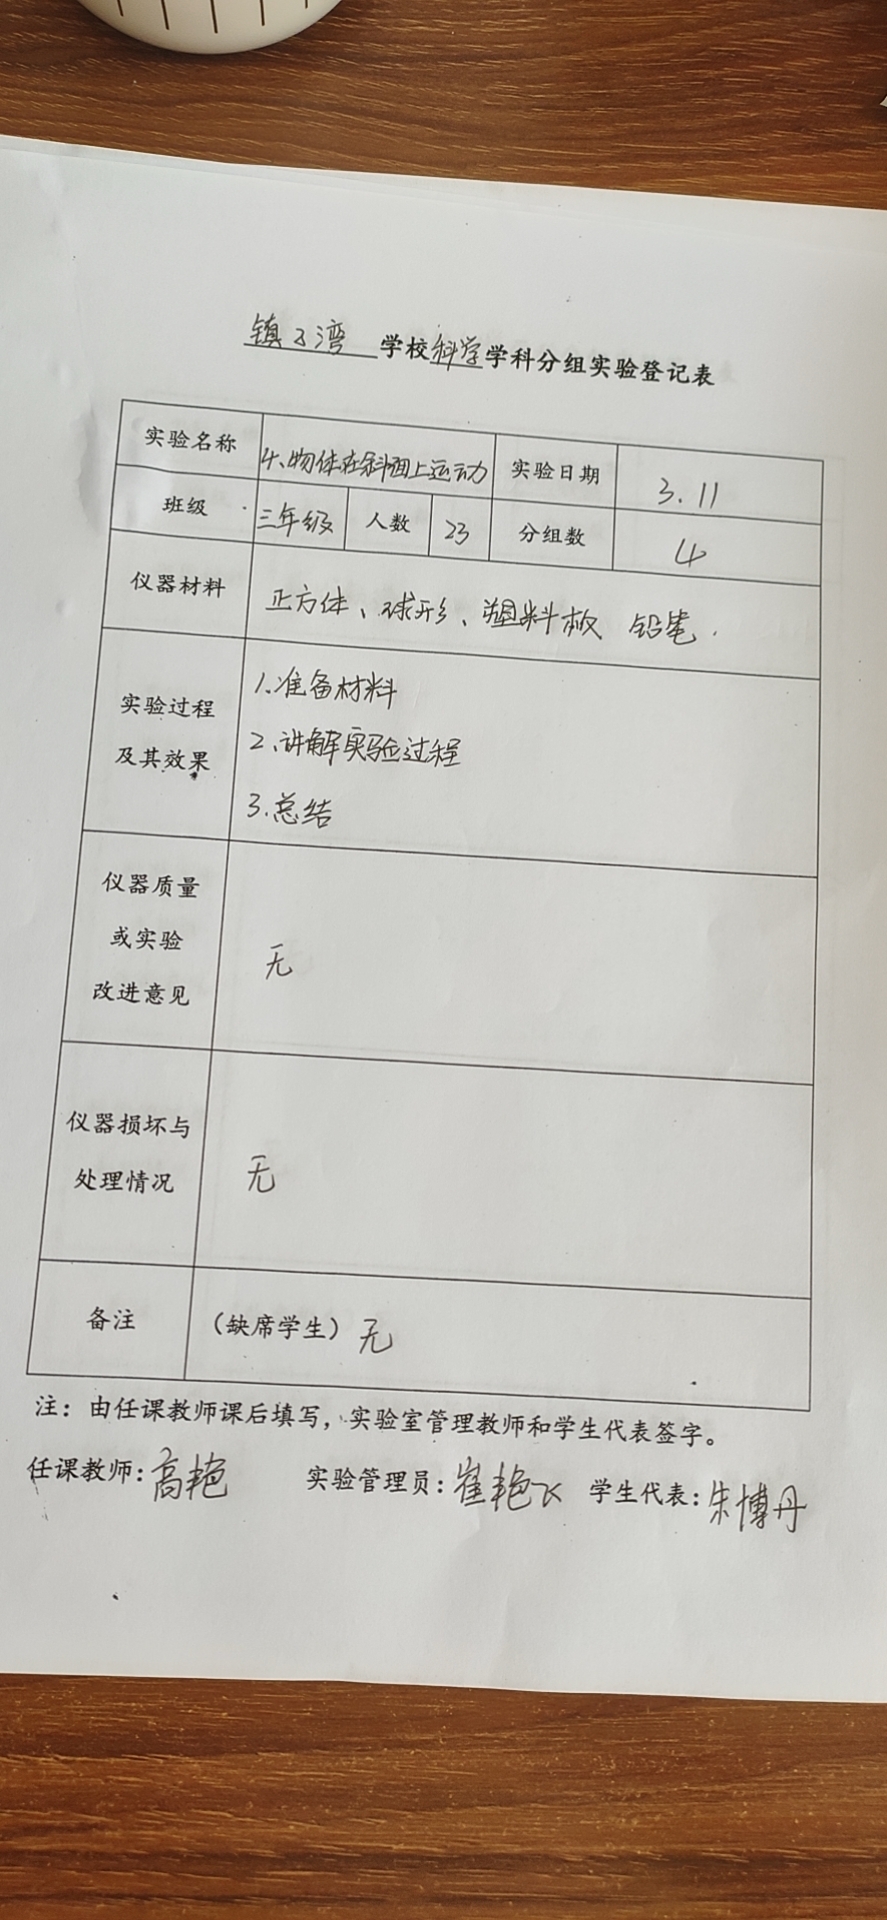 镇子湾 学校科学学科分组实验登记表
实验名称 4、物体在斜面上运动 实验日期 3.11
班级 三年级 人数 23 分组数 4
仪器材料 正方体、球形、塑料板 铅笔.
实验过程 及其效果
1.准备材料
2.讲解实验过程
3.总结
仪器质量
或实验
改进意见
无
仪器损坏与
处理情况
无
备注 (缺席学生) 无
注：由任课教师课后填写，实验室管理教师和学生代表签字。
任课教师：高艳 实验管理员：崔艳飞 学生代表：朱博丹